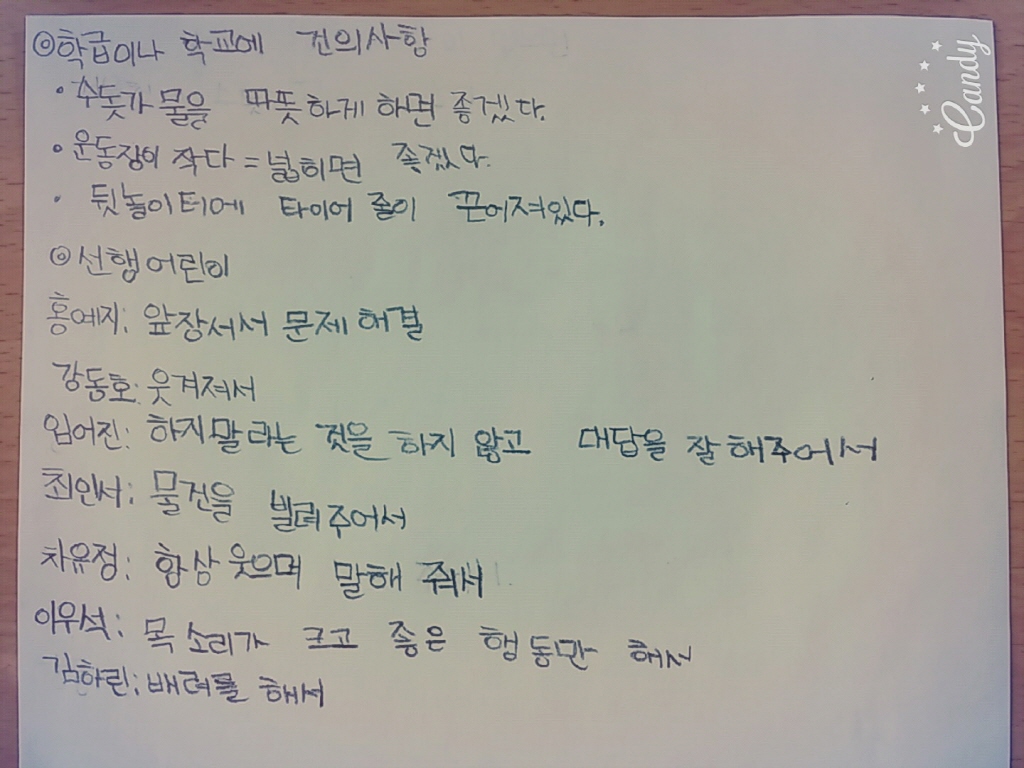 ◎학급이나 학교에 건의사항
· 수돗가 물을 따뜻하게 하면 좋겠다.
· 운동장이 작다 = 넓히면 좋겠다.
· 뒷놀이터에 타이어 줄이 끈어져있다.
◎선행어린이
홍예지: 앞장서서 문제해결
강동호: 웃겨져서
임어진: 하지말라는 것을 하지 않고 대답을 잘해주어서
최인서: 물건을 빌려주어서
차유정: 항상 웃으며 말해 줘서
이우석: 목소리가 크고 좋은 행동만 해서
김하린: 배려를 해서
Candy